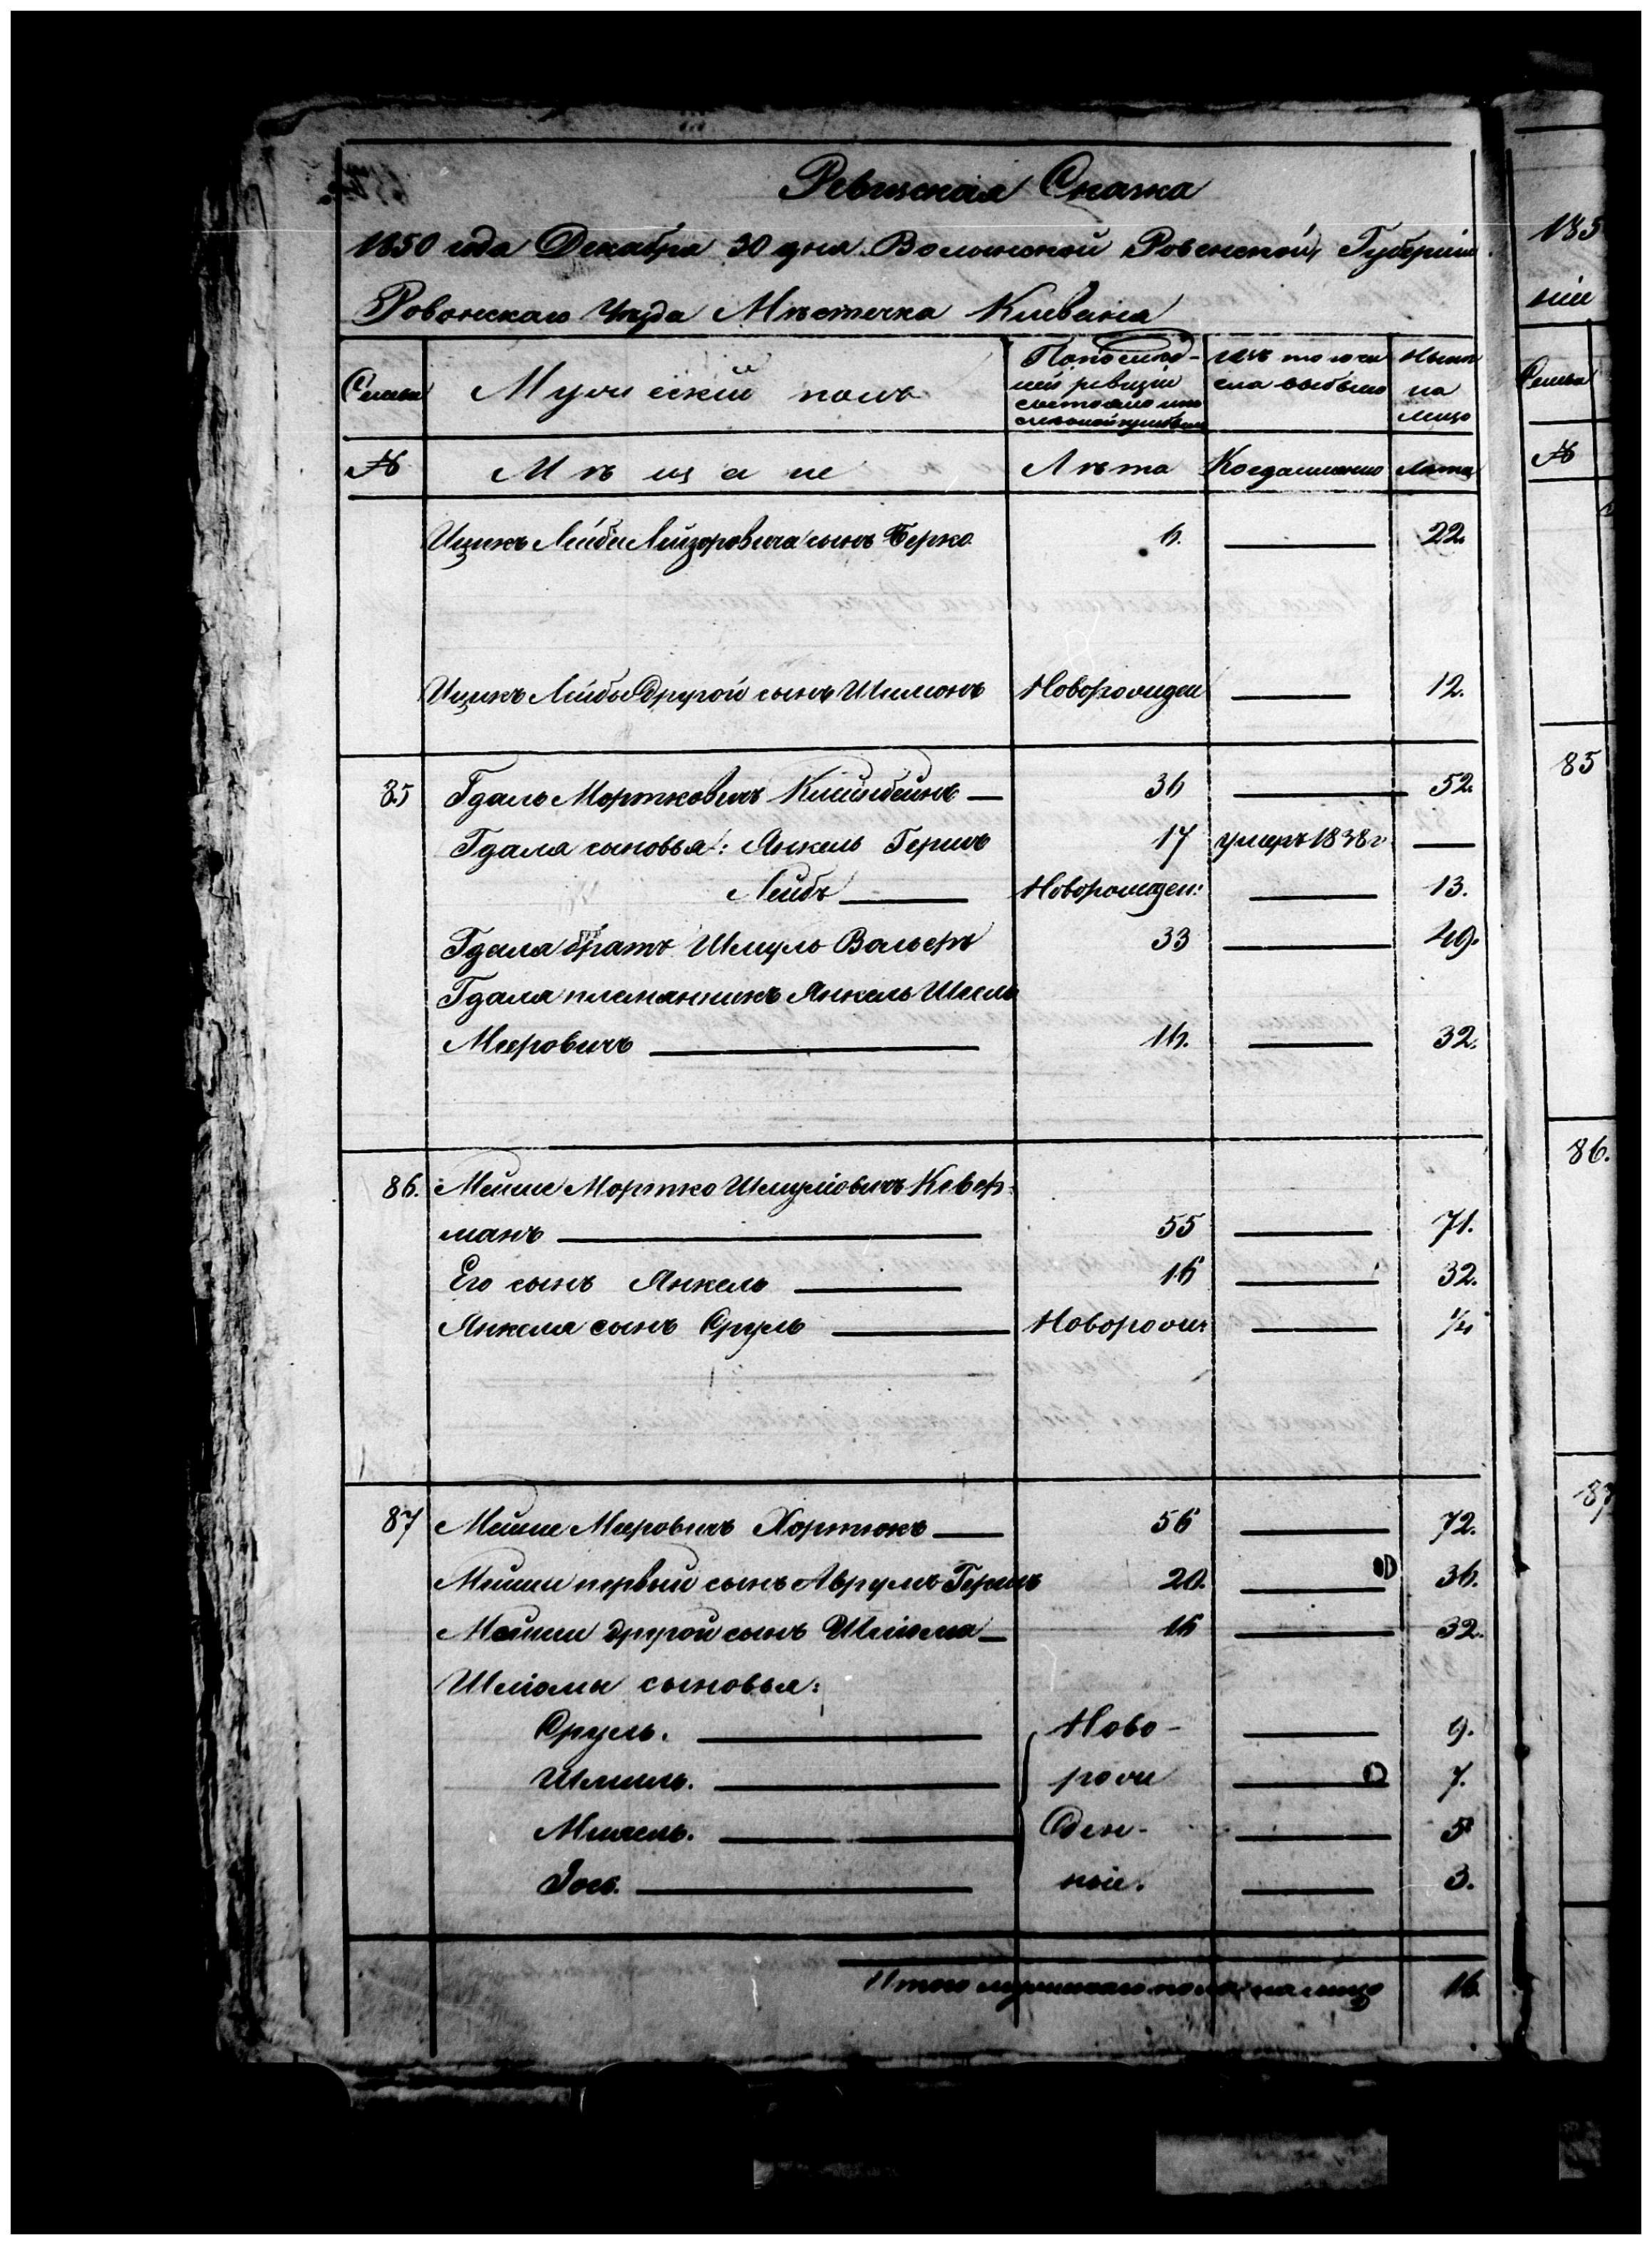 Ревизская Сказка
1850 года Декабря 30 дня Волынской Ровенской Губернии
Ровенскаго Уезда Мѣстечка Клевання
Семьи
Мужескій полъ
По послѣд-
ней ревизіи
состояло и
Изъ того чи
сла выбыло
Нынѣ
на
лицо
№
Мѣщане
Лѣта
Когда именно
Лѣта
Ицикъ Лейбы Лейзоровича сынъ Берко 6. 22.
Ицикъ Лейбы другой сынъ Шлиомъ Новорожден 12.
85 Гдаль Мортковичъ Клейнбейнъ 36 52.
Гдаля сыновья: Янкель Гершъ 17 умеръ 1838 г
Лейбъ Новорожден: 13.
Гдаля братъ Шмуль Вольфъ 33 49.
Гдаля племянникъ Янкель Шмель
Мееровичъ 16. 32.
86. Мейше Мортко Шмуліовичъ Кевер-
манъ 55 71.
Его сынъ Янкель 16 32.
Янкеля сынъ Сруль Новорож: ¼
87 Мейше Мееровичъ Хортюкъ 56 72.
Мейши первый сынъ Аврумъ Гершъ 20. 36.
Мейши другой сынъ Шліома 16 32.
Шліомы сыновья:
Сруль. Ново- 9.
Шмиль. рож 7.
Михель. ден- 5
Іось. ные. 3.
Итого мужескаго пола на лицо 16
185
ніи
Семьи
№
85
86.
87